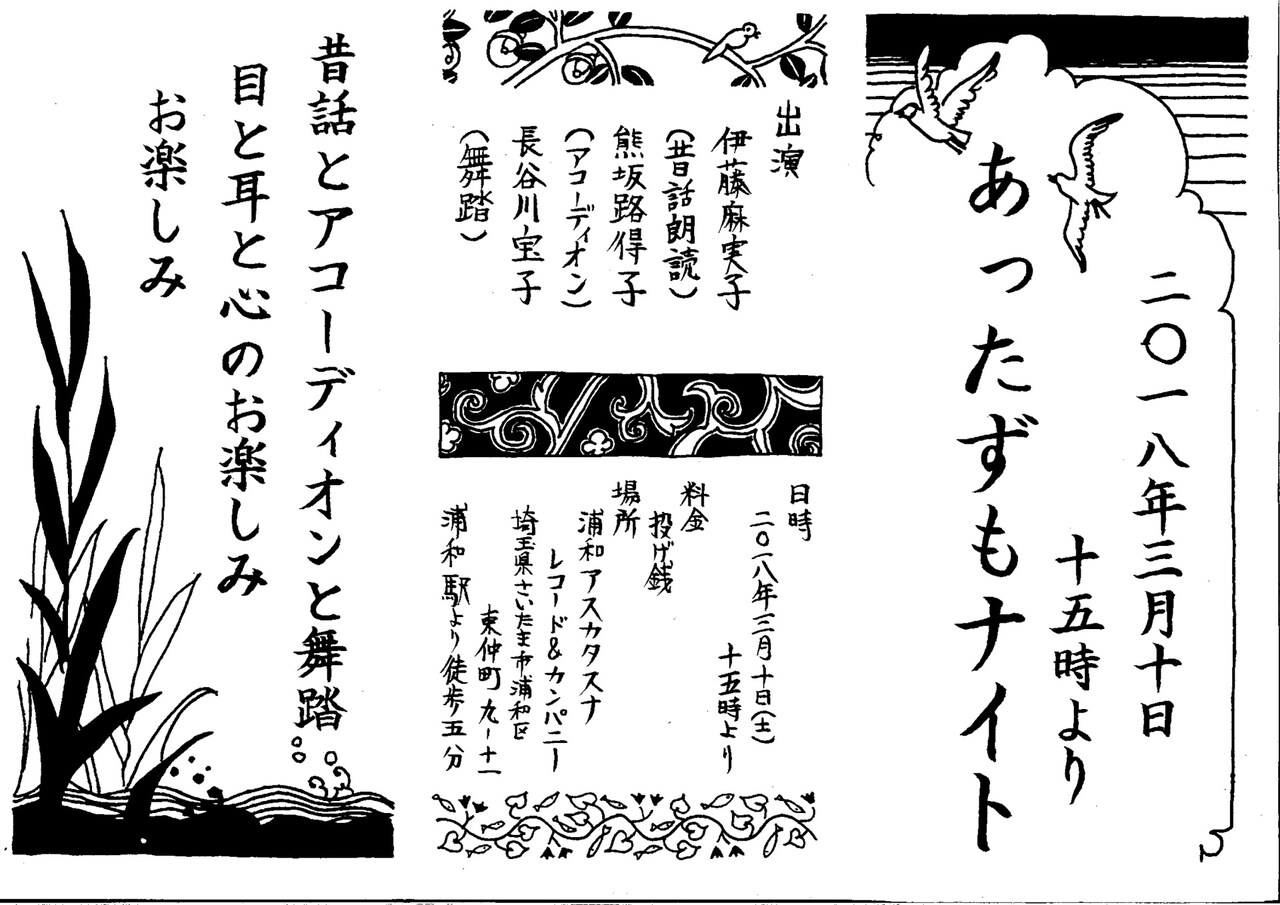 二〇一八年三月十日
十五時より
あったずもナイト
出演
伊藤麻実子
(昔話朗読)
熊坂路得子
(アコーディオン)
長谷川宝子
(舞踏)
日時
二〇一八年三月十日(土)
十五時より
料金
投げ銭
場所
浦和アスカタスナ
レコード&カンパニー
埼玉県さいたま市浦和区
東仲町九ー十一
浦和駅より徒歩五分
昔話とアコーディオンと舞踏
目と耳と心のお楽しみ
お楽しみ